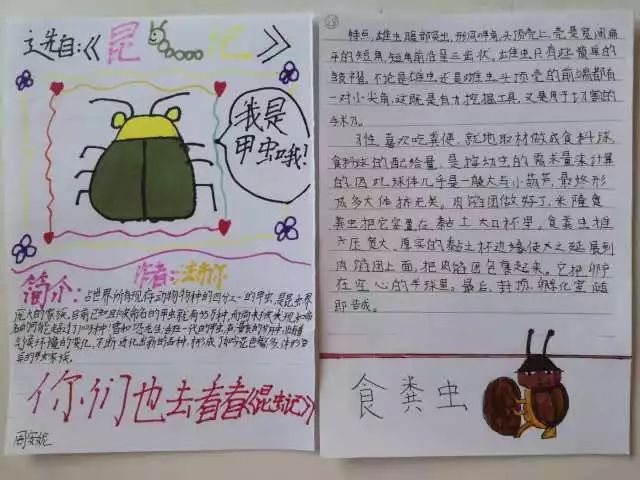 选自:《昆 记》
我是
甲虫哦!
作者:法布尔
简介:占世界所有现存动物物种的四分之一的甲虫,是昆虫界
庞大的家族,目前已知且被命名的甲虫就有35万种,而尚未被发现
不断进化出新的品种,形成了如今花色繁多,体形各
异的甲虫家族。
你们也去看看《昆虫记》
特点,雄虫腹部突出,形成
平的短角,短角前沿呈三齿状。雌虫只有些简单的
皱褶。不论是雄虫还是雌虫头顶壳的前端都有
一对小尖角,这既是有力挖掘工具,又是用于切割的
手术刀。
习性 喜欢吃粪便,就地取材做成食料球,
食料球的配给量,是按幼虫的需求量来计算
的因此球体几乎是一般大与小葫芦,最终形
成多大体格无关。肉馅团做好了,米隆食
粪虫把它安置在黏土大口杯里。食粪虫按
压宽大、厚实的黏土杯边缘使之延展到
肉馅团上面,把肉馅团包裹起来。它把卵
在空心的半球里。最后,封顶,孵化室随
即告成。
食粪虫